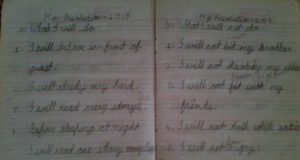 My Resolution-2013
What I will do
I will behave in-front of
guest
2. I will study very hard.
3. I will read many storys
4. Before sleeping at night
I will read one story
My Resolution-2013
What will not do
1. I will not hit my brother
2. I will not disturb my
3. I will not with my
friends.
4. I will not talk while
5. I will not cry